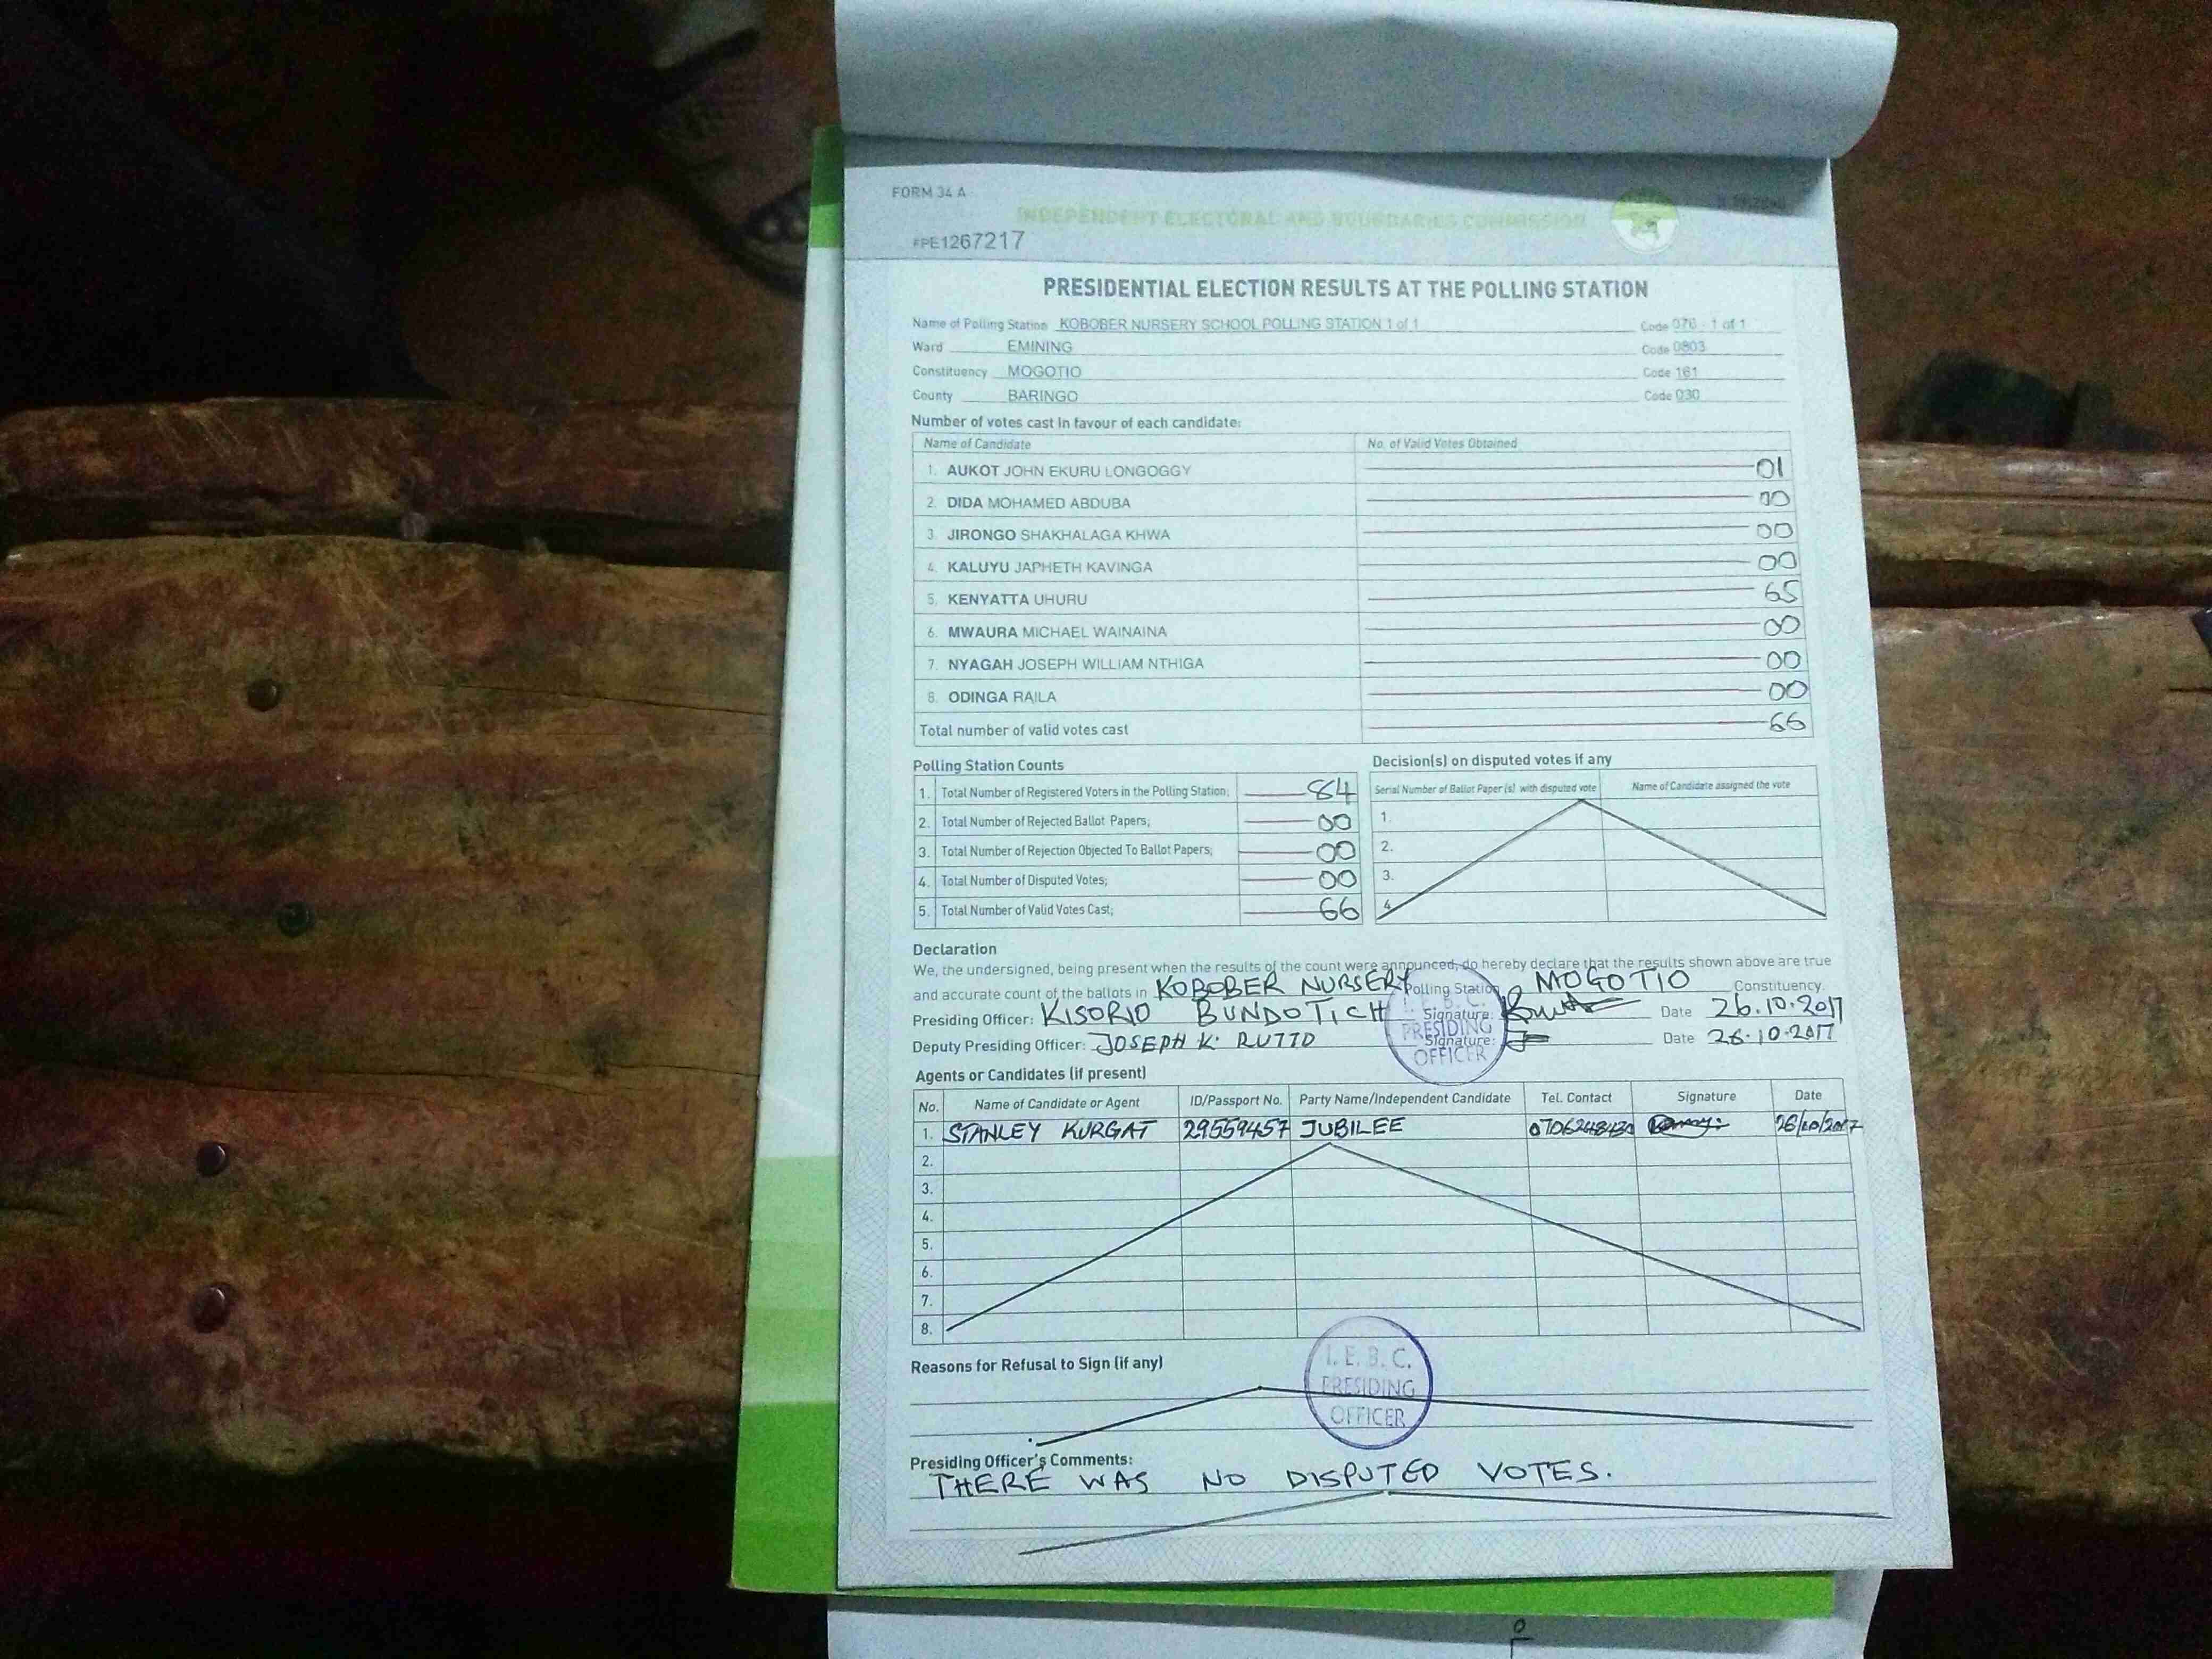 FORM 34 A
INDEPENDENT ELECTORAL AND BOUNDARIES COMMISSION
#PE1267217
PRESIDENTIAL ELECTION RESULTS AT THE POLLING STATION
Name of Polling Station KOBOBER NURSERY SCHOOL POLLING STATION 1 of 1 Code 076 - 1 of 1
Ward EMINING Code 0803
Constituency MOGOTIO Code 161
County BARINGO Code 030
Number of votes cast in favour of each candidate:
Name of Candidate No. of Valid Votes Obtained
1. AUKOT JOHN EKURU LONGOGGY 01
2. DIDA MOHAMED ABDUBA 00
3. JIRONGO SHAKHALAGA KHWA 00
4. KALUYU JAPHETH KAVINGA 00
5. KENYATTA UHURU 65
6. MWAURA MICHAEL WAINAINA 00
7. NYAGAH JOSEPH WILLIAM NTHIGA 00
8. ODINGA RAILA 00
Total number of valid votes cast 66
Polling Station Counts
1. Total Number of Registered Voters in the Polling Station; 84
2. Total Number of Rejected Ballot Papers; 00
3. Total Number of Rejection Objected To Ballot Papers; 00
4. Total Number of Disputed Votes; 00
5. Total Number of Valid Votes Cast; 66
Decision(s) on disputed votes if any
Serial Number of Ballot Paper (s) with disputed vote Name of Candidate assigned the vote
1.
2.
3.
4.
Declaration
We, the undersigned, being present when the results of the count were announced, do hereby declare that the results shown above are true
and accurate count of the ballots in KOBOBER NURSERY Polling Station MOGOTIO Constituency.
Presiding Officer: KISORIO BUNDOTICH Signature: Date 26.10.2017
Deputy Presiding Officer: JOSEPH K. RUTTO Signature: Date 26.10.2017
I. E. B. C.
PRESIDING
OFFICER
Agents or Candidates (if present)
No. Name of Candidate or Agent ID/Passport No. Party Name/Independent Candidate Tel. Contact Signature Date
1. STANLEY KURGAT 29559457 JUBILEE 0706248430 26/10/2017
2.
3.
4.
5.
6.
7.
8.
Reasons for Refusal to Sign (if any)
I. E. B. C.
PRESIDING
OFFICER
Presiding Officer's Comments:
THERE WAS NO DISPUTED VOTES.